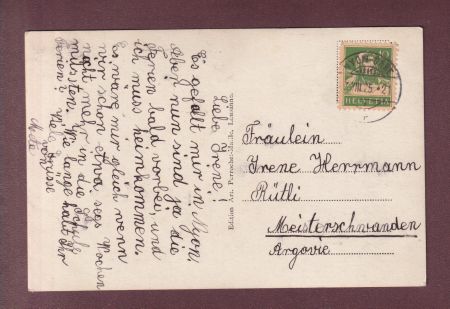 Liebe Irene!
Es gefällt mir in Nyon.
Aber nun sind ja die
Ferien bald vorbei, und
ich muss heimkommen.
Es wäre mir gleich wenn
wir schon etwa, sos Wochen
nicht mehr in die Schule
müssten. Wie lange habt Ihr
Ferien? Viele Grüsse
Edition Art. Perrochet-Matile, Lausanne.
10
HELVETIA
Fräulein
Irene Herrmann
Rütli
Meisterschwanden
Argovie